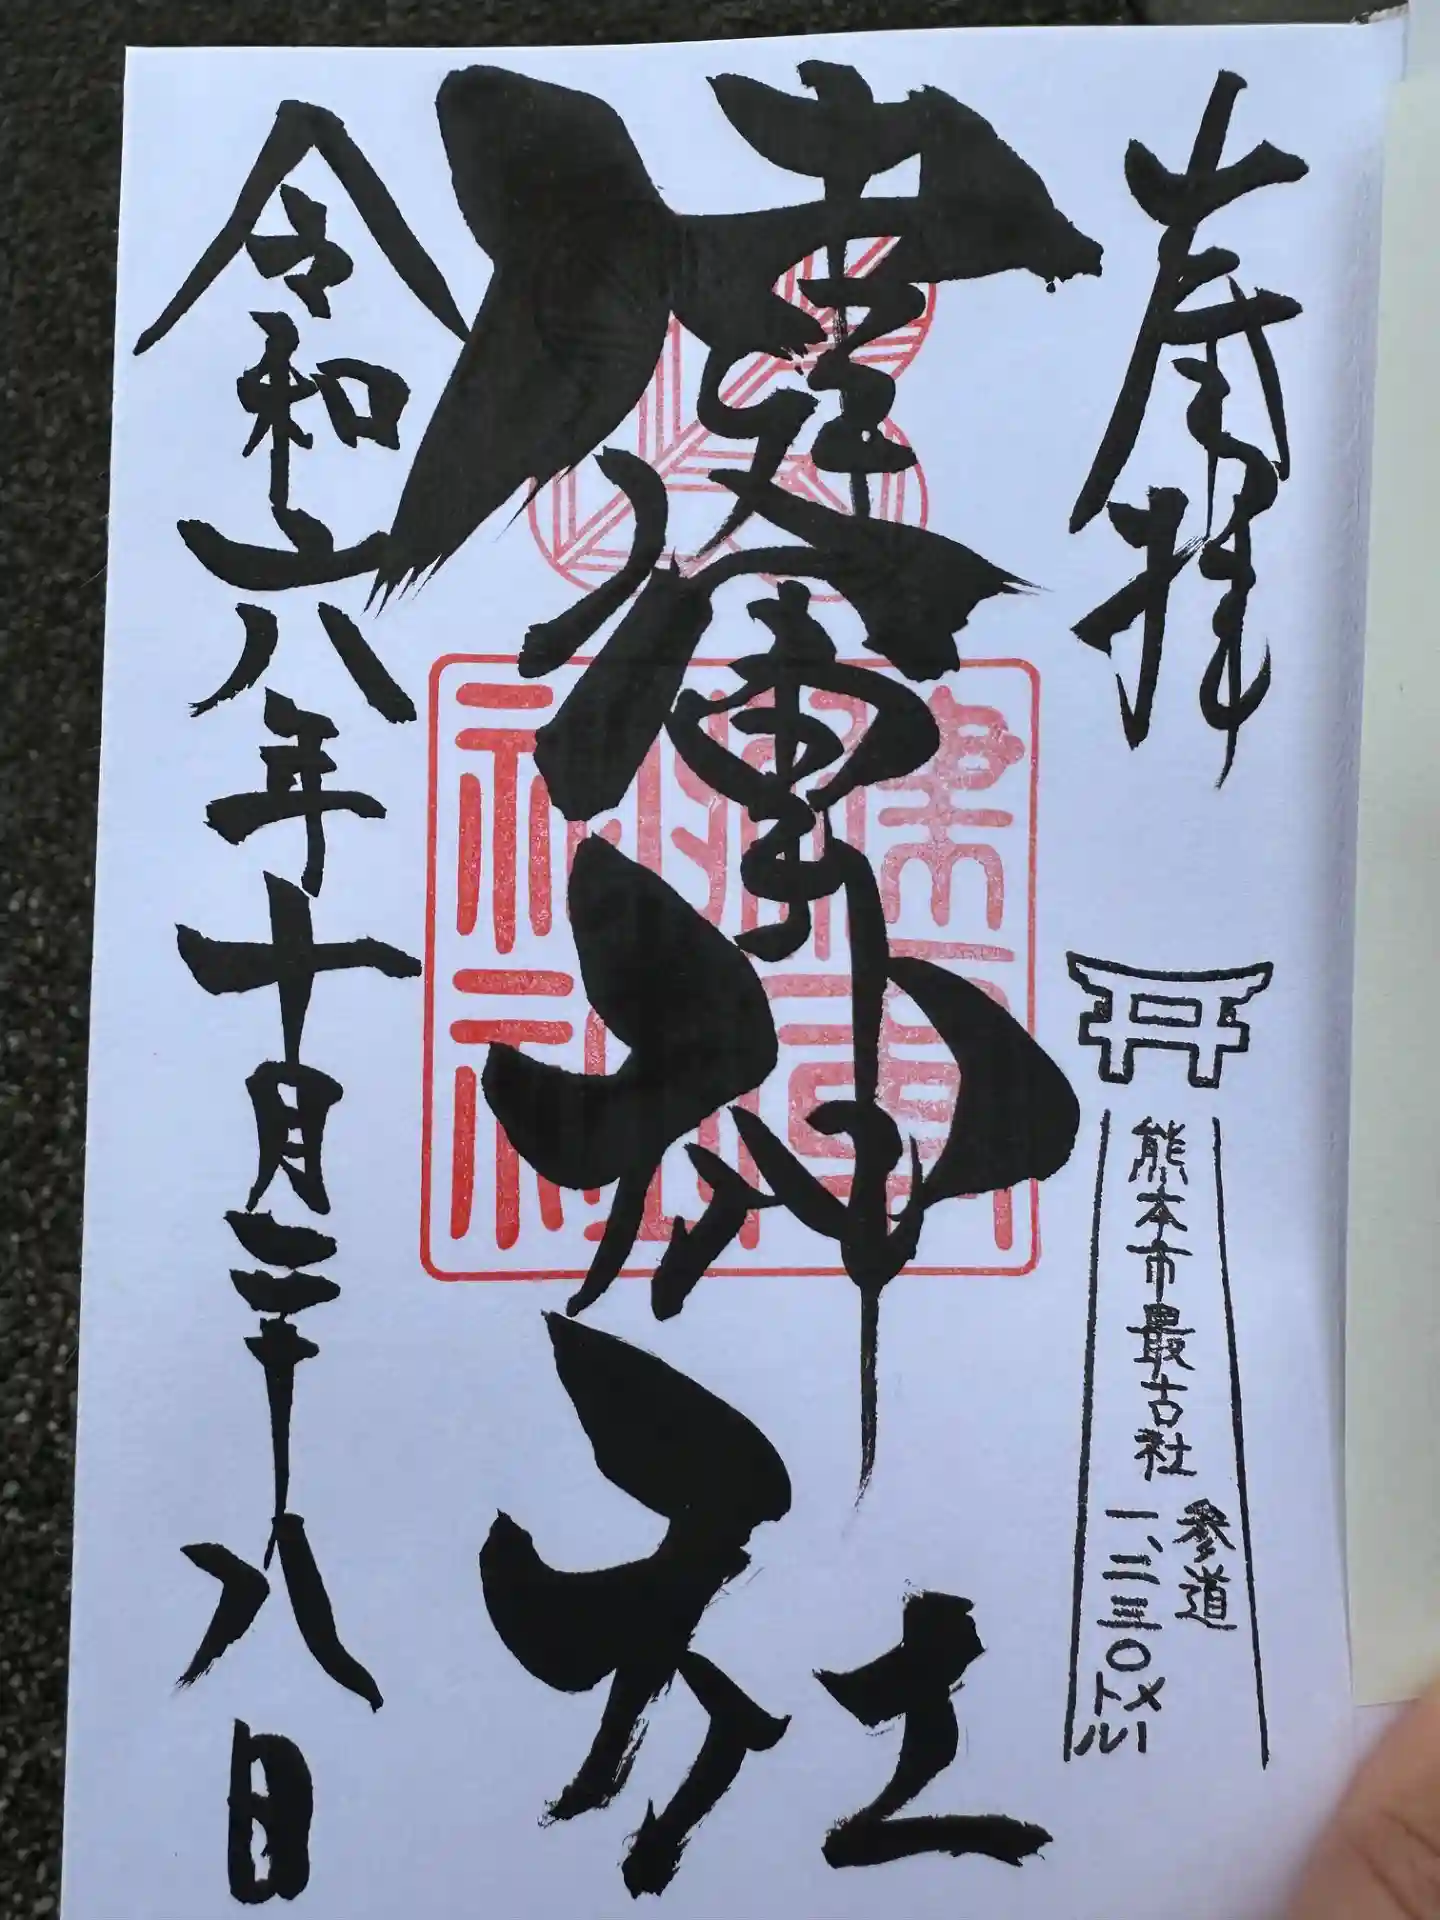 奉拝
熊本市最古社
参道
一、二三〇メートル
健軍神社
健軍神社
令和六年十月二十八日